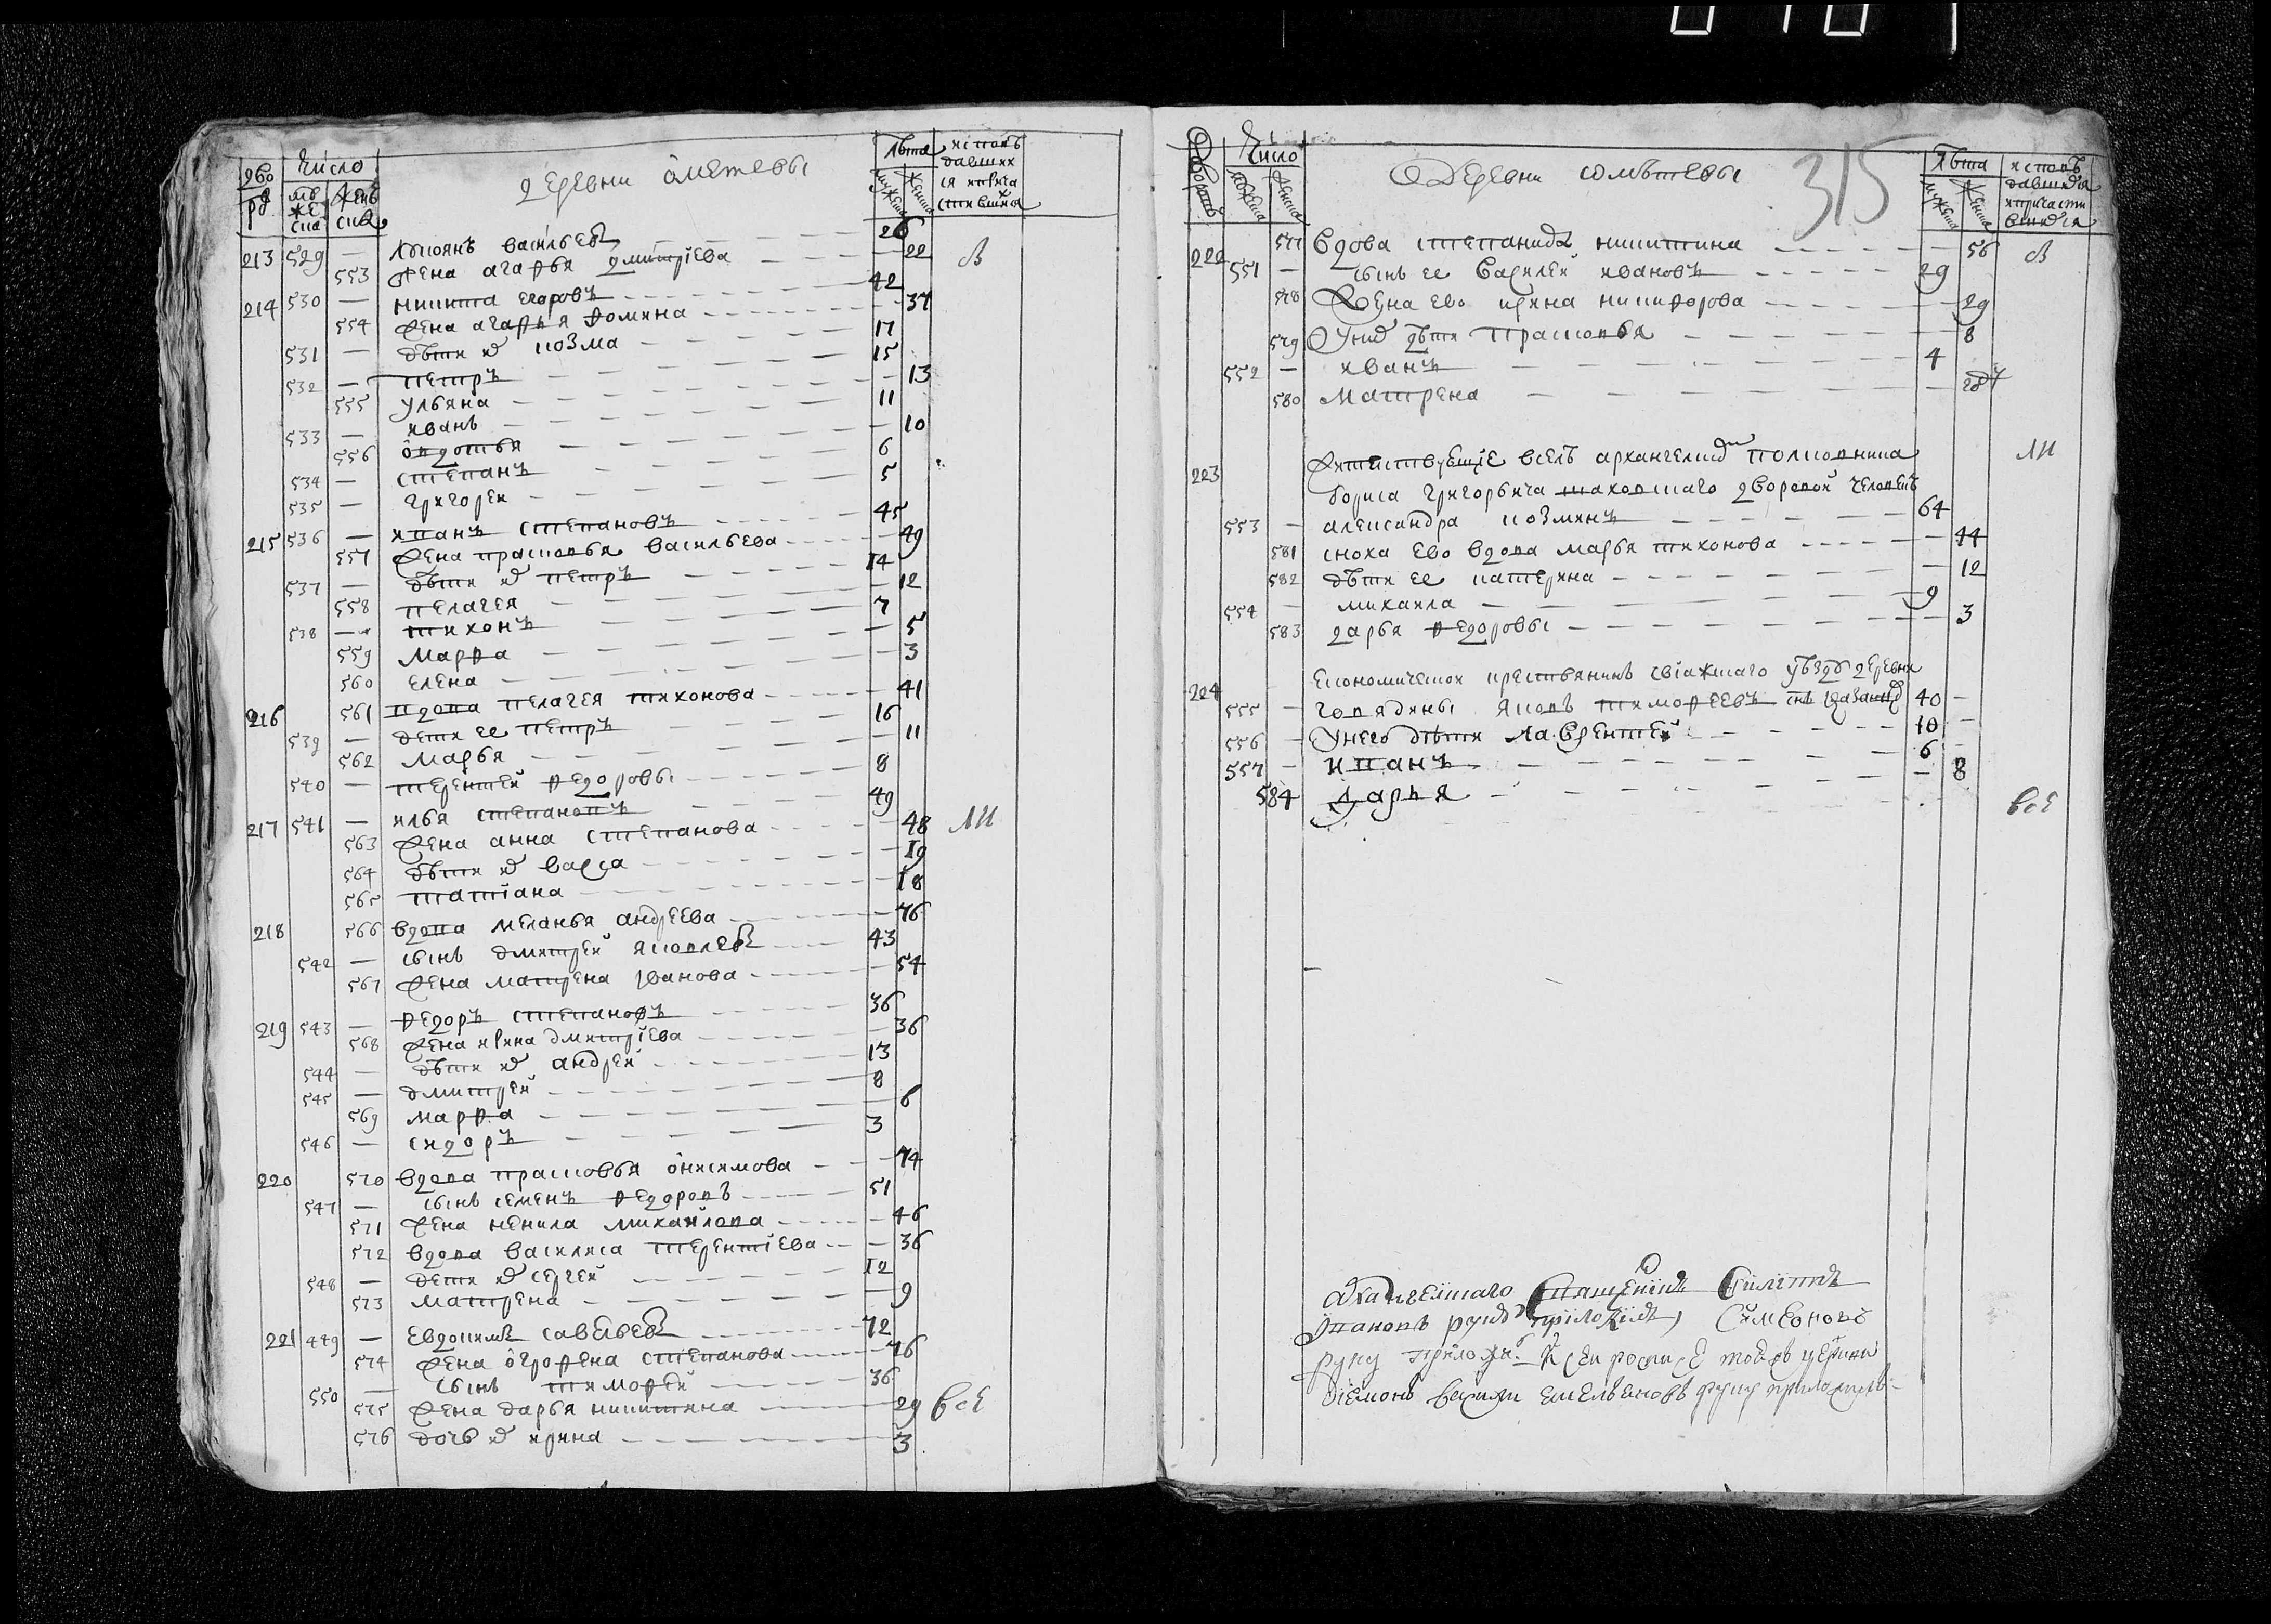 дво ръ число лѣта исповѣ давших ся и прича стивших
муже ска женъ ска мужеска женска
деревни ометевы
213 529 — лукоянъ васильевъ 26
553 жена агафья дмитріева 22 ѡ
214 530 — никита егоровъ 42
554 жена агафья фомина 37
531 — дѣти их козма 17
532 — петръ 15
555 ульяна 13
533 — иванъ 11
556 овдотья 10
534 — степанъ 6
535 — григореи 5
215 536 — иванъ степановъ 45
557 жена прасковья васильева 49
537 — дѣти их петръ 14
558 пелагея 12
538 — тихонъ 7
559 марфа 5
560 елена 3
216 561 вдова пелагея тихонова 41
539 — дети ее петръ 16
562 марья 11
540 — терентей федоровы 8
217 541 — илья степановъ 49
563 жена анна степанова 48 ли
564 дѣти их васса 19
565 татіана 18
218 566 вдова меланья андреева 76
542 — сынъ дмитрей яковлевъ 43
567 жена матрена иванова 54
219 543 — федоръ степановъ 36
568 жена ирина дмитріева 36
544 — дѣти их андрей 13
545 — дмитрей 8
569 марфа 6
546 — сидоръ 3
220 570 вдова прасковья онисимова 74
547 — сынъ семенъ федоровъ 51
571 жена ненила михайлова 46
572 вдова василиса терентіева 36
548 — дети их сергей 12
573 матрена 9
221 449 — евдокимъ савельевъ 72
574 жена огрофена степанова 76
550 — сынъ тимофей 36
575 жена дарья никитина 29 всѣ
576 дочь их ирина 3
315
дворовъ число лѣта исповѣ давшихся и причасти вшихся
мужеска женска мужеска женска
деревни омѣтевы
222 577 вдова степанида никитина 56 ѡ
551 — сынъ ее василей ивановъ 29
578 жена ево ирина никифорова 29
579 у них дѣти прасковья 8
552 — иванъ 4
580 матрена
223 жителствующіе в селѣ архангелском полковника ли
бориса григорьича шаховскаго дворовой человекъ
553 — александра козминъ 64
581 сноха ево вдова марья тихонова 44
582 дѣти ее катерина 12
554 — михаила 9
583 дарья федоровы 3
224 економическои крестьянинъ свіажскаго уѣзда деревни
555 — говядины яковъ тимофеевъ 40 —
556 — у него дѣти лаврентей 10 —
557 — иванъ 6 —
584 дарья 8
всѣ
священникъ филиппъ
ивановъ руку приложилъ симеоновъ
руку приложи к сеи росписе тои ж церкви
діаконъ василеи емельяновъ руку приложилъ